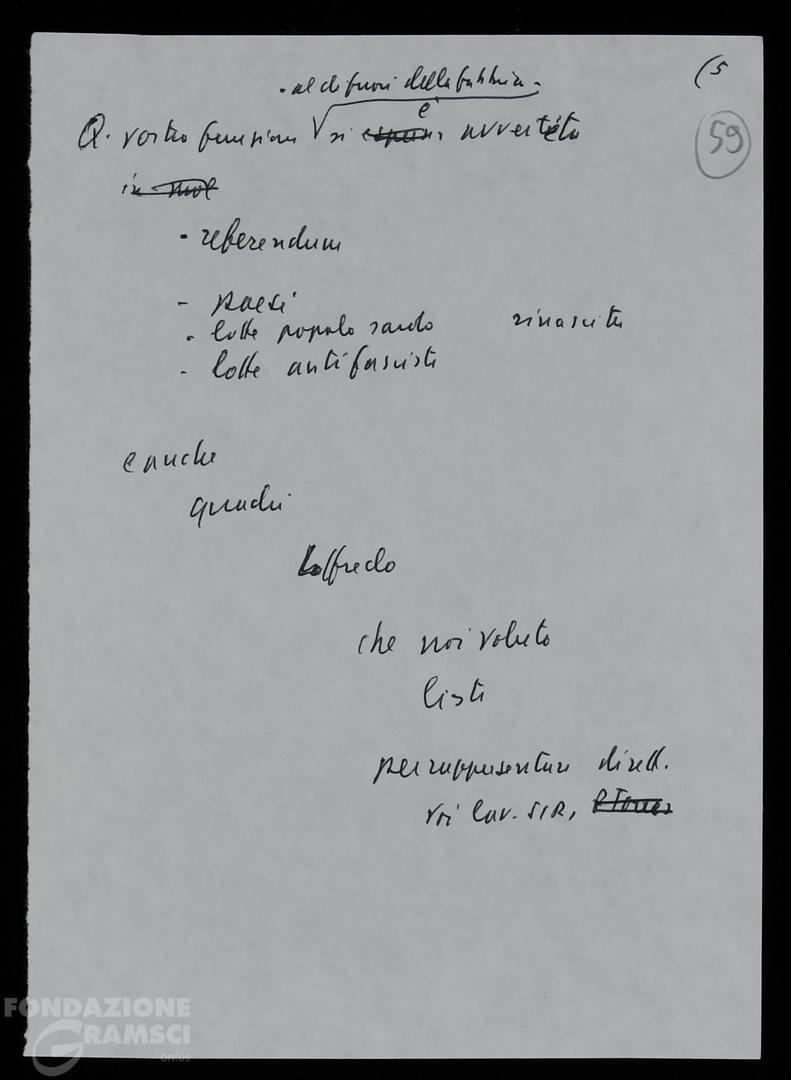 (5
59
- al di fuori della fabbrica -
Q. vostra funzione si è avvertita
- referendum
- paesi
- lotte popolo sardo rinascita
- lotte antifasciste
e anche
quadri
Loffredo
che noi voluto
liste
per rappresentare dirett.
voi lav. SIR,
FONDAZIONE
GRAMSCI
onlus